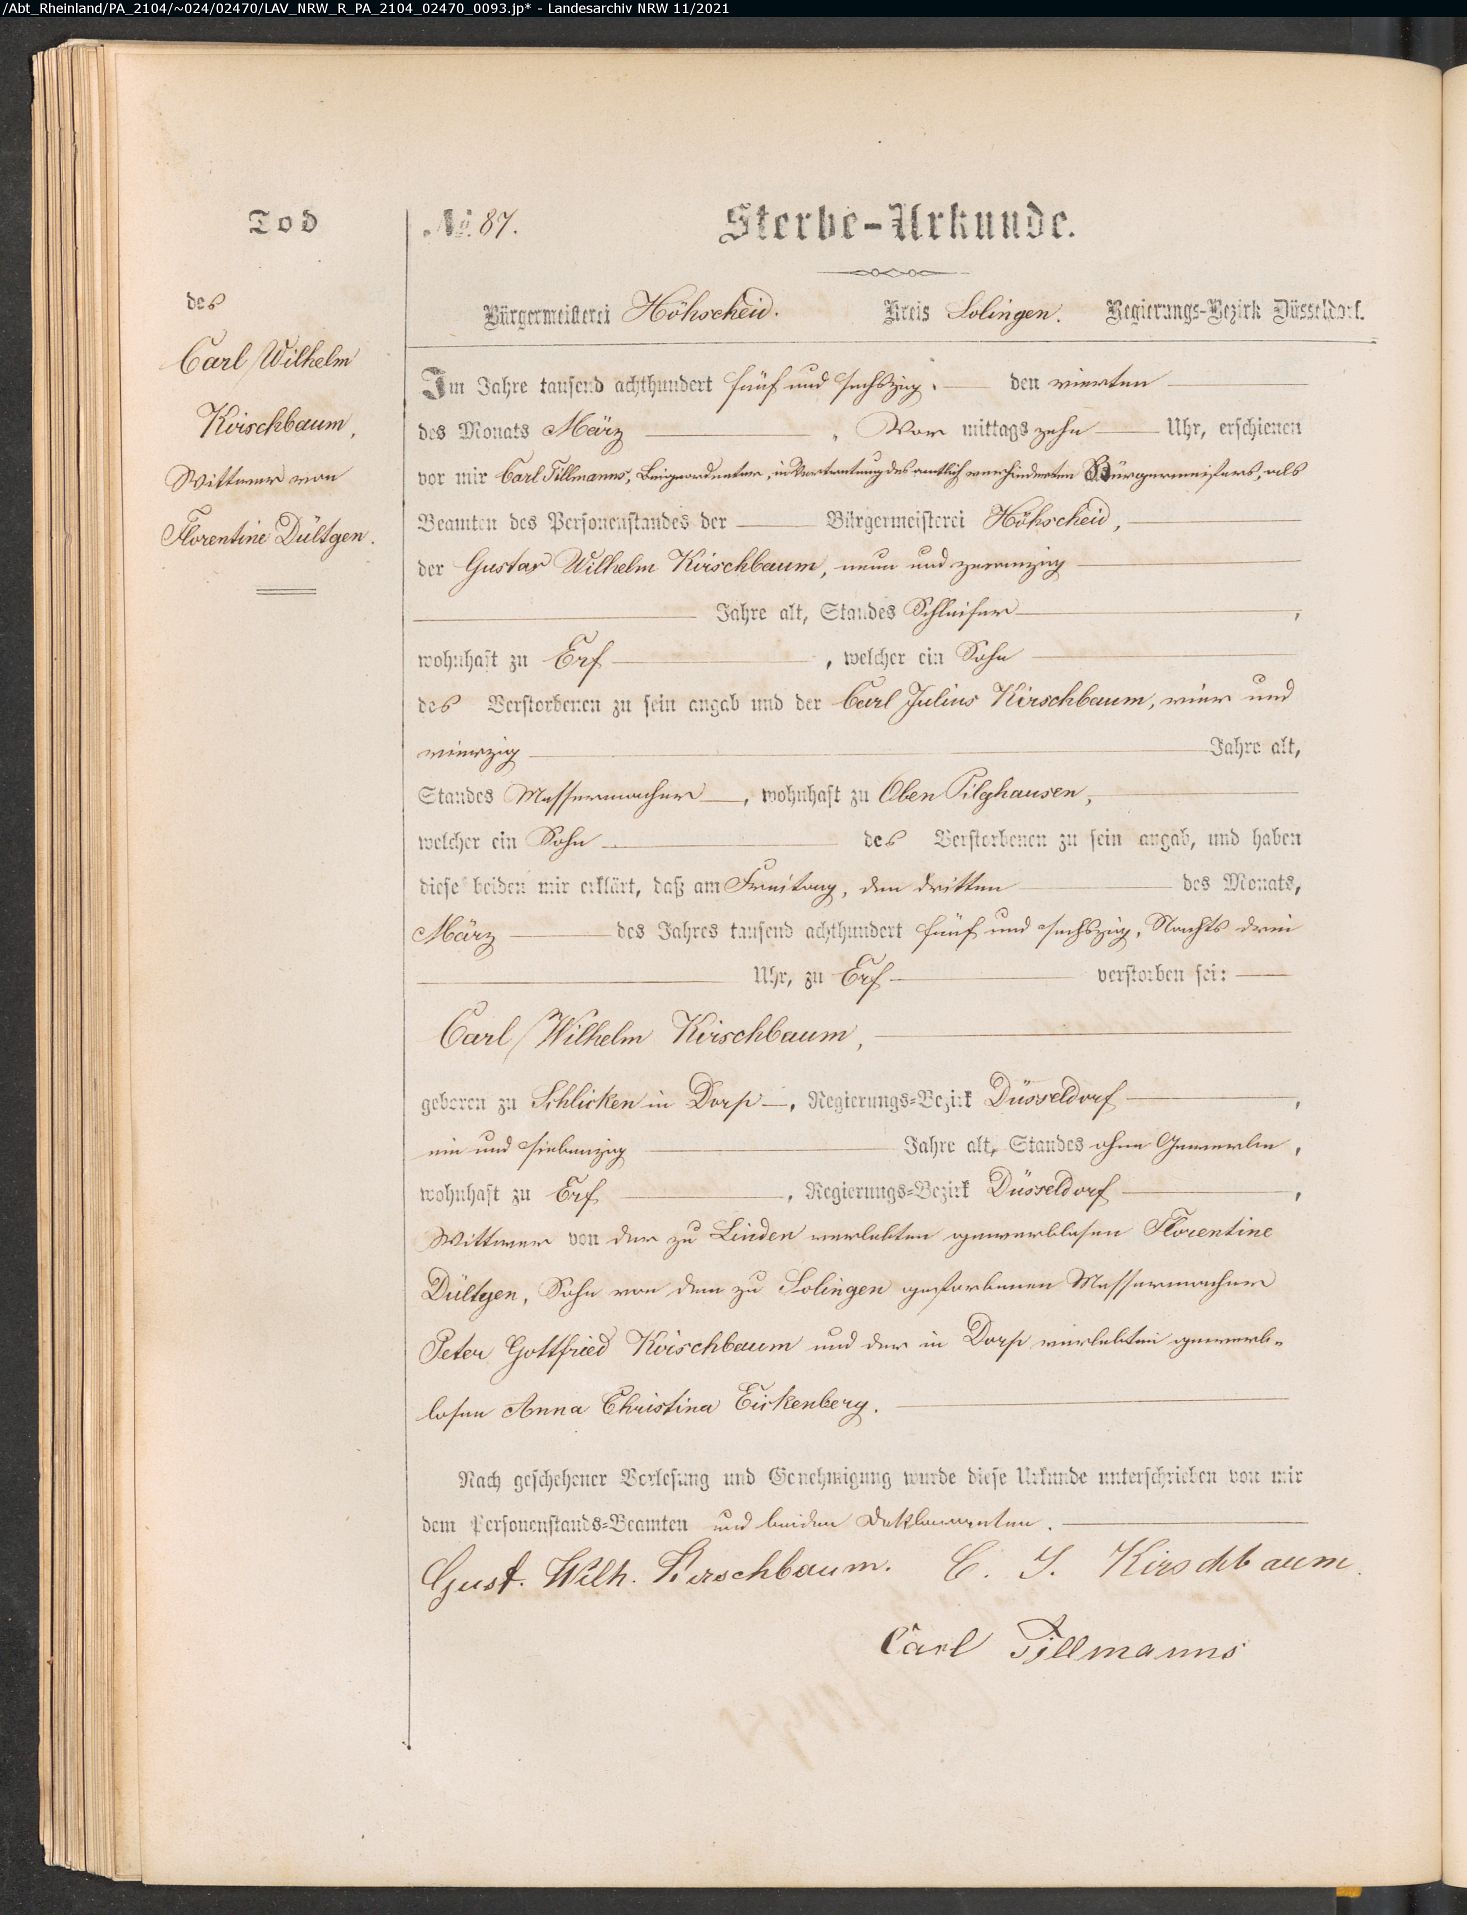 /Abt_Rheinland/PA_2104/~024/02470/LAV_NRW_R_PA_2104_02470_0093.jp* - Landesarchiv NRW 11/2021
Tod
des
Carl Wilhelm
Kirschbaum,
Wittwer von
Florentine Dültgen.
№ 87.
Sterbe-Urkunde.
Bürgermeisterei Höhscheid. Kreis Solingen. Regierungs-Bezirk Düsseldorf.
Im Jahre tausend achthundert fünf und sechszig, den vierten
des Monats März, Vor mittags zehn Uhr, erschienen
vor mir Carl Tillmanns, Beigeordneter, in Vertretung des amtlich verhinderten Bürgermeisters, als
Beamten des Personenstandes der Bürgermeisterei Höhscheid,
der Gustav Wilhelm Kirschbaum, neun und zwanzig
Jahre alt, Standes Schleifer,
wohnhaft zu Erf, welcher ein Sohn
des Verstorbenen zu sein angab und der Carl Julius Kirschbaum, vier und
vierzig Jahre alt,
Standes Messermacher, wohnhaft zu Oben Pilghausen,
welcher ein Sohn des Verstorbenen zu sein angab, und haben
diese beiden mir erklärt, daß am Freitag, den dritten des Monats,
März des Jahres tausend achthundert fünf und sechszig, Nachts drei
Uhr, zu Erf verstorben sei:
Carl Wilhelm Kirschbaum,
geboren zu Schlicken in Dorp, Regierungs-Bezirk Düsseldorf,
ein und siebenzig Jahre alt, Standes ohne Gewerbe,
wohnhaft zu Erf, Regierungs-Bezirk Düsseldorf,
Wittwer von der zu Linden verlebten gewerblosen Florentine
Dültgen, Sohn von dem zu Solingen gestorbenen Messermacher
Peter Gottfried Kirschbaum und der in Dorp verlebten gewerb-
losen Anna Christina Eickenberg.
Nach geschehener Vorlesung und Genehmigung wurde diese Urkunde unterschrieben von mir
dem Personenstands-Beamten und beiden Deklaranten.
Gust. Wilh. Kirschbaum. C. J. Kirschbaum.
Carl Tillmanns